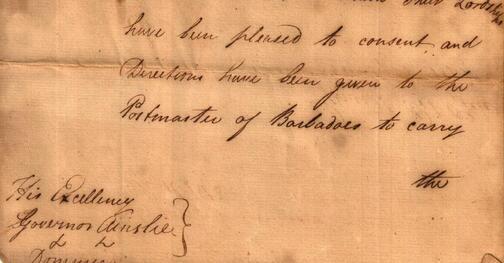 their Lordships
have been pleased to consent, and
Directions have been given to the
Postmaster of Barbadoes to carry
the
His Excellency
Governor Ainslie }
& &